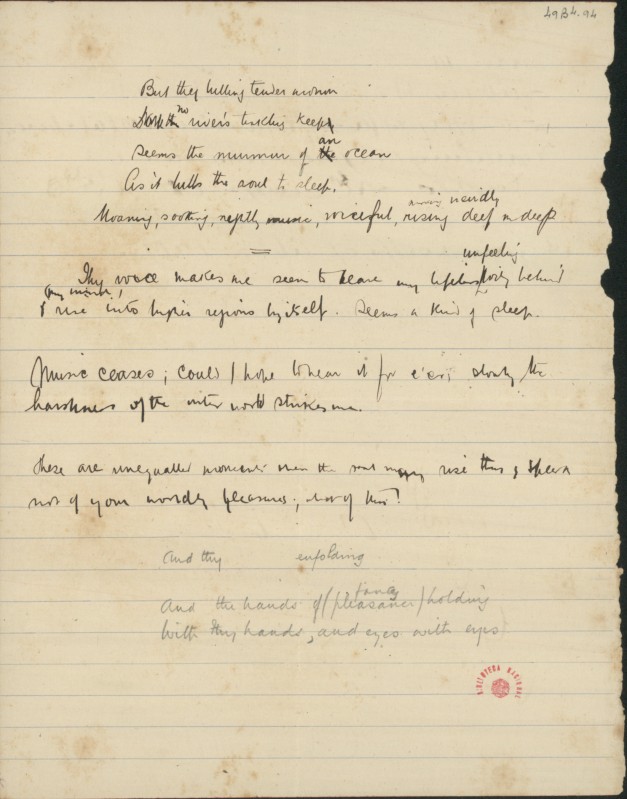 49B4-94
But thy lulling tender motion
no
river's trickling keeps
an
Seems the murmur of the ocean
As it lulls the soul to sleep.
nearidly
Moaning, soothing, music, voiceful, rising deep on deep
unfeeling
Thy voice makes me seem to leave my lifeless body behind
(my mind!)
& rise into higher regions by itself. Seems a kind of sleep.
Music ceases; could I hope to hear it for e'er; slowly the
harshness of the outer world strikes me.
These are unequalled moments when the soul may rise thus; speak
not of your worldly pleasures;
And thy enfolding
fancy
And the hands of (pleasance) holding
With thy hands, and eyes with eyes
BIBLIOTECA NACIONAL